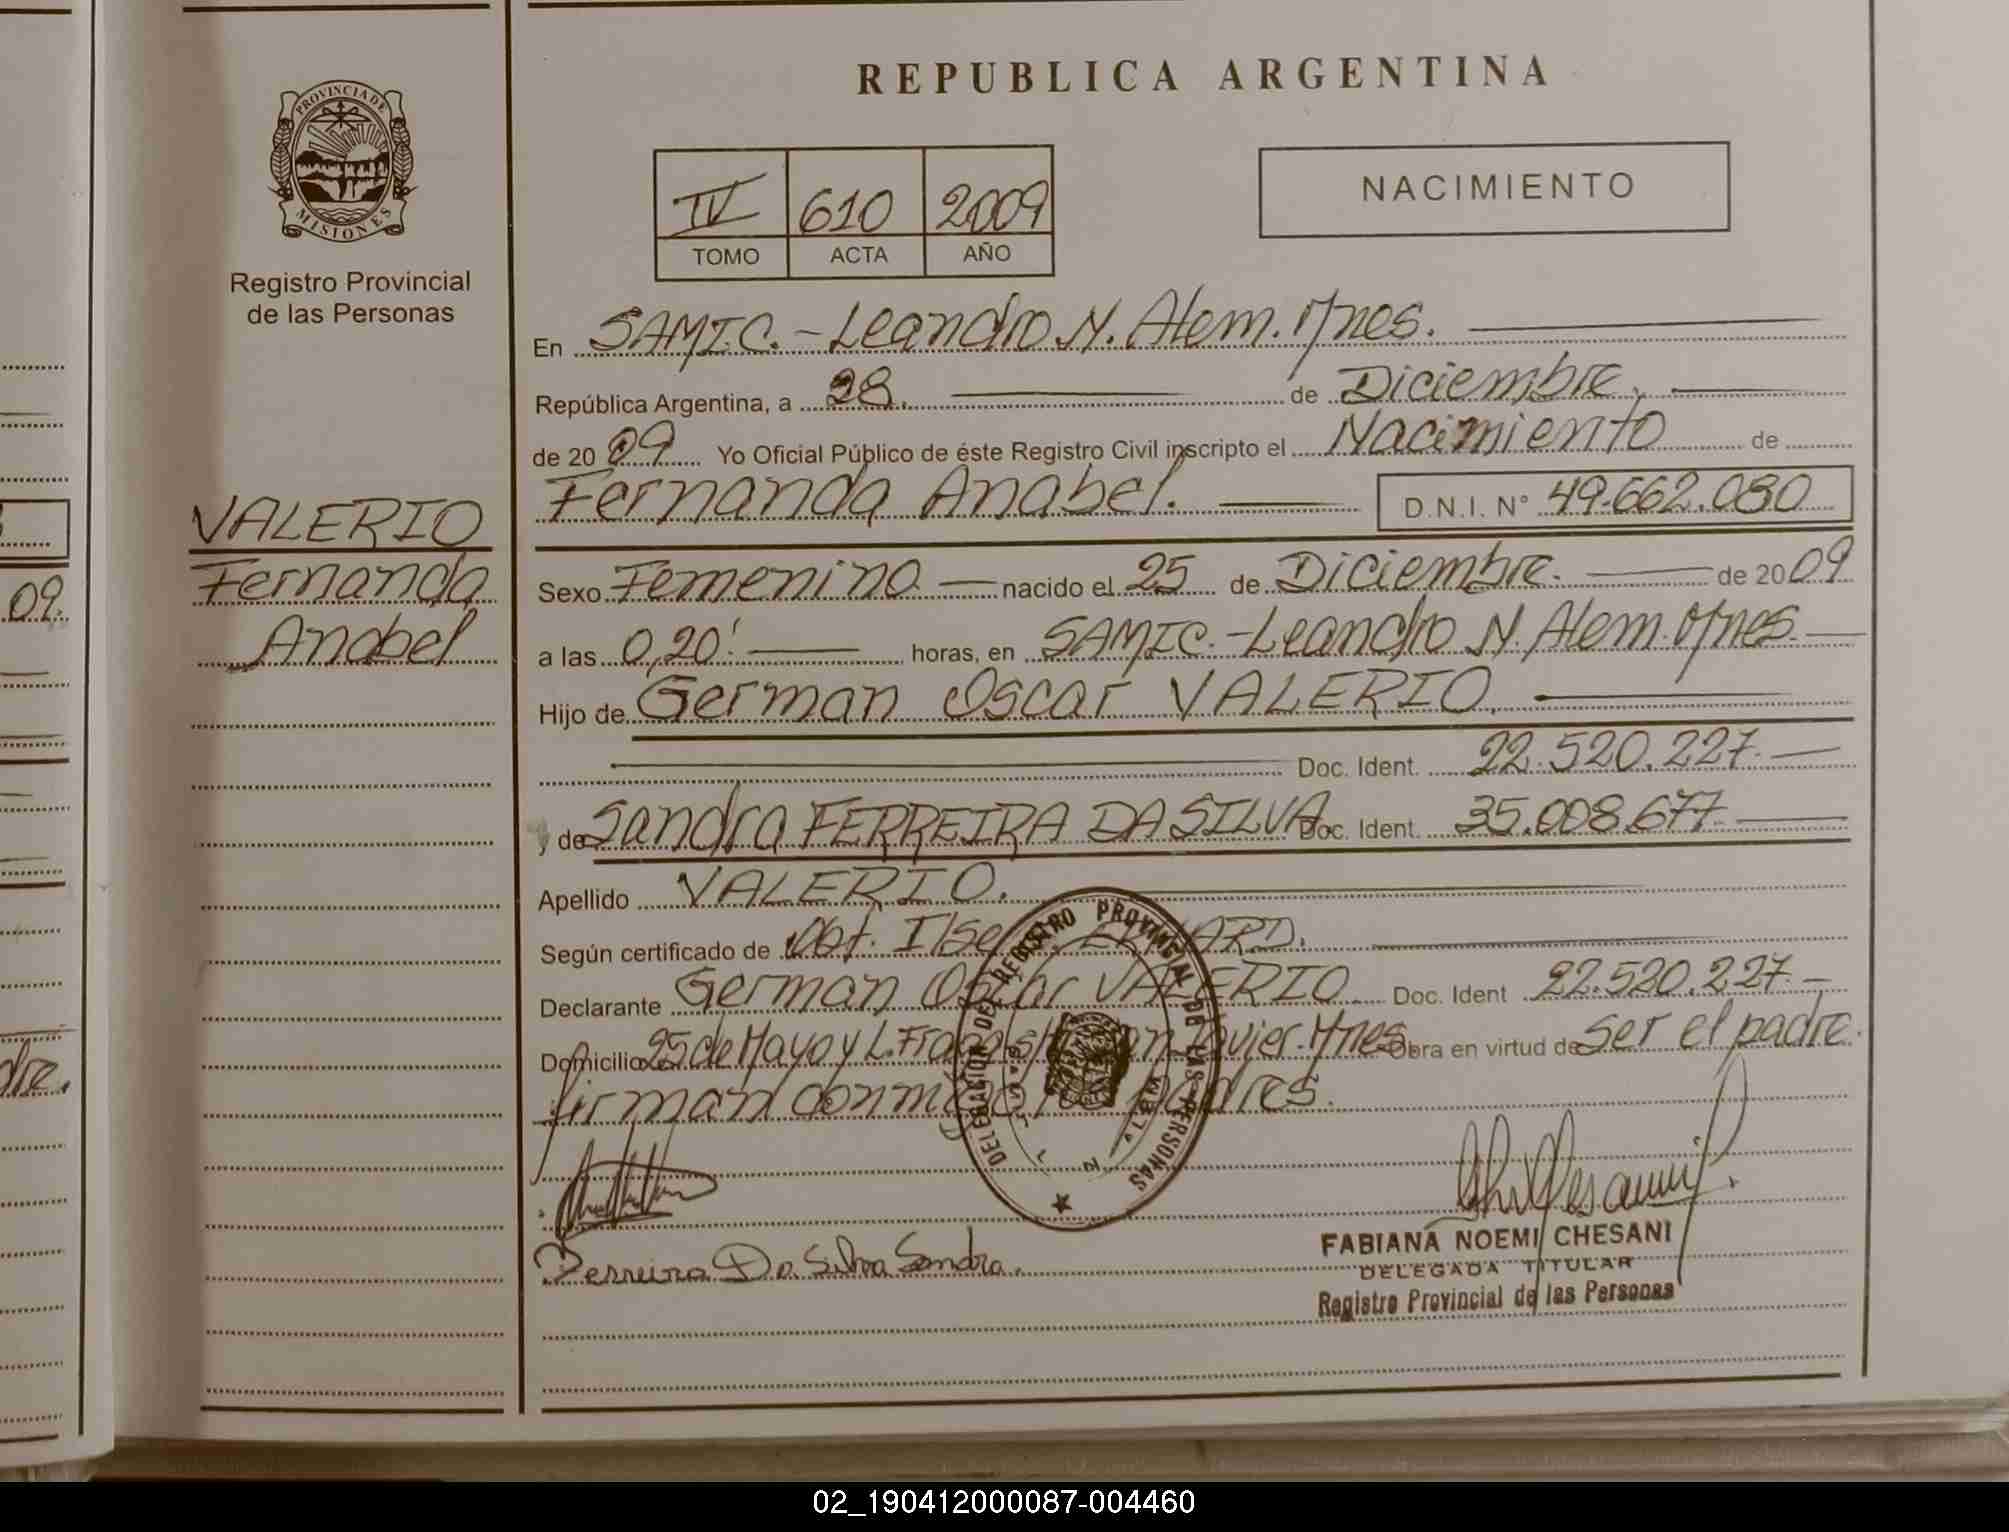 REPUBLICA ARGENTINA
PROVINCIA DE
MISIONES
Registro Provincial
de las Personas
IV 610 2009
TOMO ACTA AÑO
NACIMIENTO
En SAMIC. - Leandro N. Alem. Mnes.
República Argentina, a 28. de Diciembre.
de 2009 Yo Oficial Público de éste Registro Civil inscripto el Nacimiento de
Fernanda Anabel. D.N.I. N° 49.662.080
VALERIO
Fernanda
Anabel
Sexo Femenino nacido el 25 de Diciembre. de 2009
a las 0,20' horas, en SAMIC. - Leandro N. Alem. Mnes.
Hijo de German Oscar VALERIO.
Doc. Ident. 22.520.227.
y de Sandra FERREIRA DA SILVA Doc. Ident. 35.008.677.
Apellido VALERIO.
Según certificado de Obt. Ilse
Declarante German Oscar VALERIO. Doc. Ident 22.520.227.
Domicilio 25 de Mayo y L. Javier. Mnes. Obra en virtud de ser el padre.
firman conmigo los padres.
DELEGACION DEL REGISTRO PROVINCIAL DE LAS PERSONAS
Ferreira Da Silva Sandra.
FABIANA NOEMI CHESANI
DELEGADA TITULAR
Registro Provincial de las Personas
09.
dre.
02_190412000087-004460